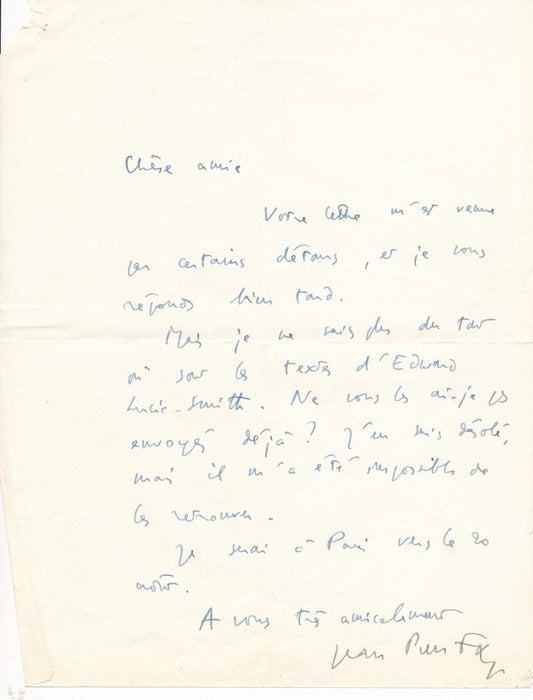 Chère amie
Votre lettre m'est venue
par certains détours, et je vous
réponds bien tard.
Mais je ne sais plus du tout
où sont les textes d'Edward
Lucie-Smith. Ne vous les ai-je pas
envoyés déjà? J'en suis désolé,
mais il m'a été impossible de
les retrouver.
Je serai à Paris vers le 20
août.
A vous très amicalement
Jean Pierre